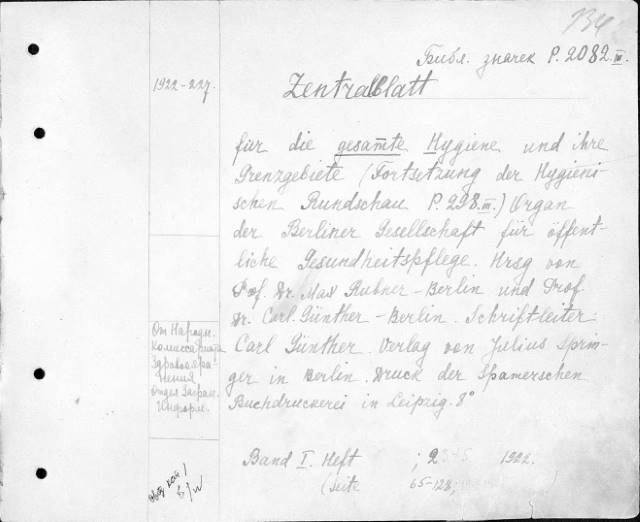 134
Библ. значек P. 2082.III.
1922-227.
Zentralblatt
für die gesam̅te Hygiene und ihre
Grenzgebiete (Fortsetzung der Hygieni-
schen Rundschau P. 298.III.) Organ
der Berliner Gesellschaft für öffent-
liche Gesundheitspflege. Hrsg von
Prof. Dr. Max Rubner-Berlin und Prof
Dr. Carl Günther-Berlin. Schriftleiter
Carl Günther. Verlag von Julius Sprin-
ger in Berlin. Druck der Spamerschen
Buchdruckerei in Leipzig. 8°
От Народн.
комиссариата
Здравоохра-
нения
Отдел Загран.
Информ.
Band I. Heft ; 2 1922.
(Seite 65-128;